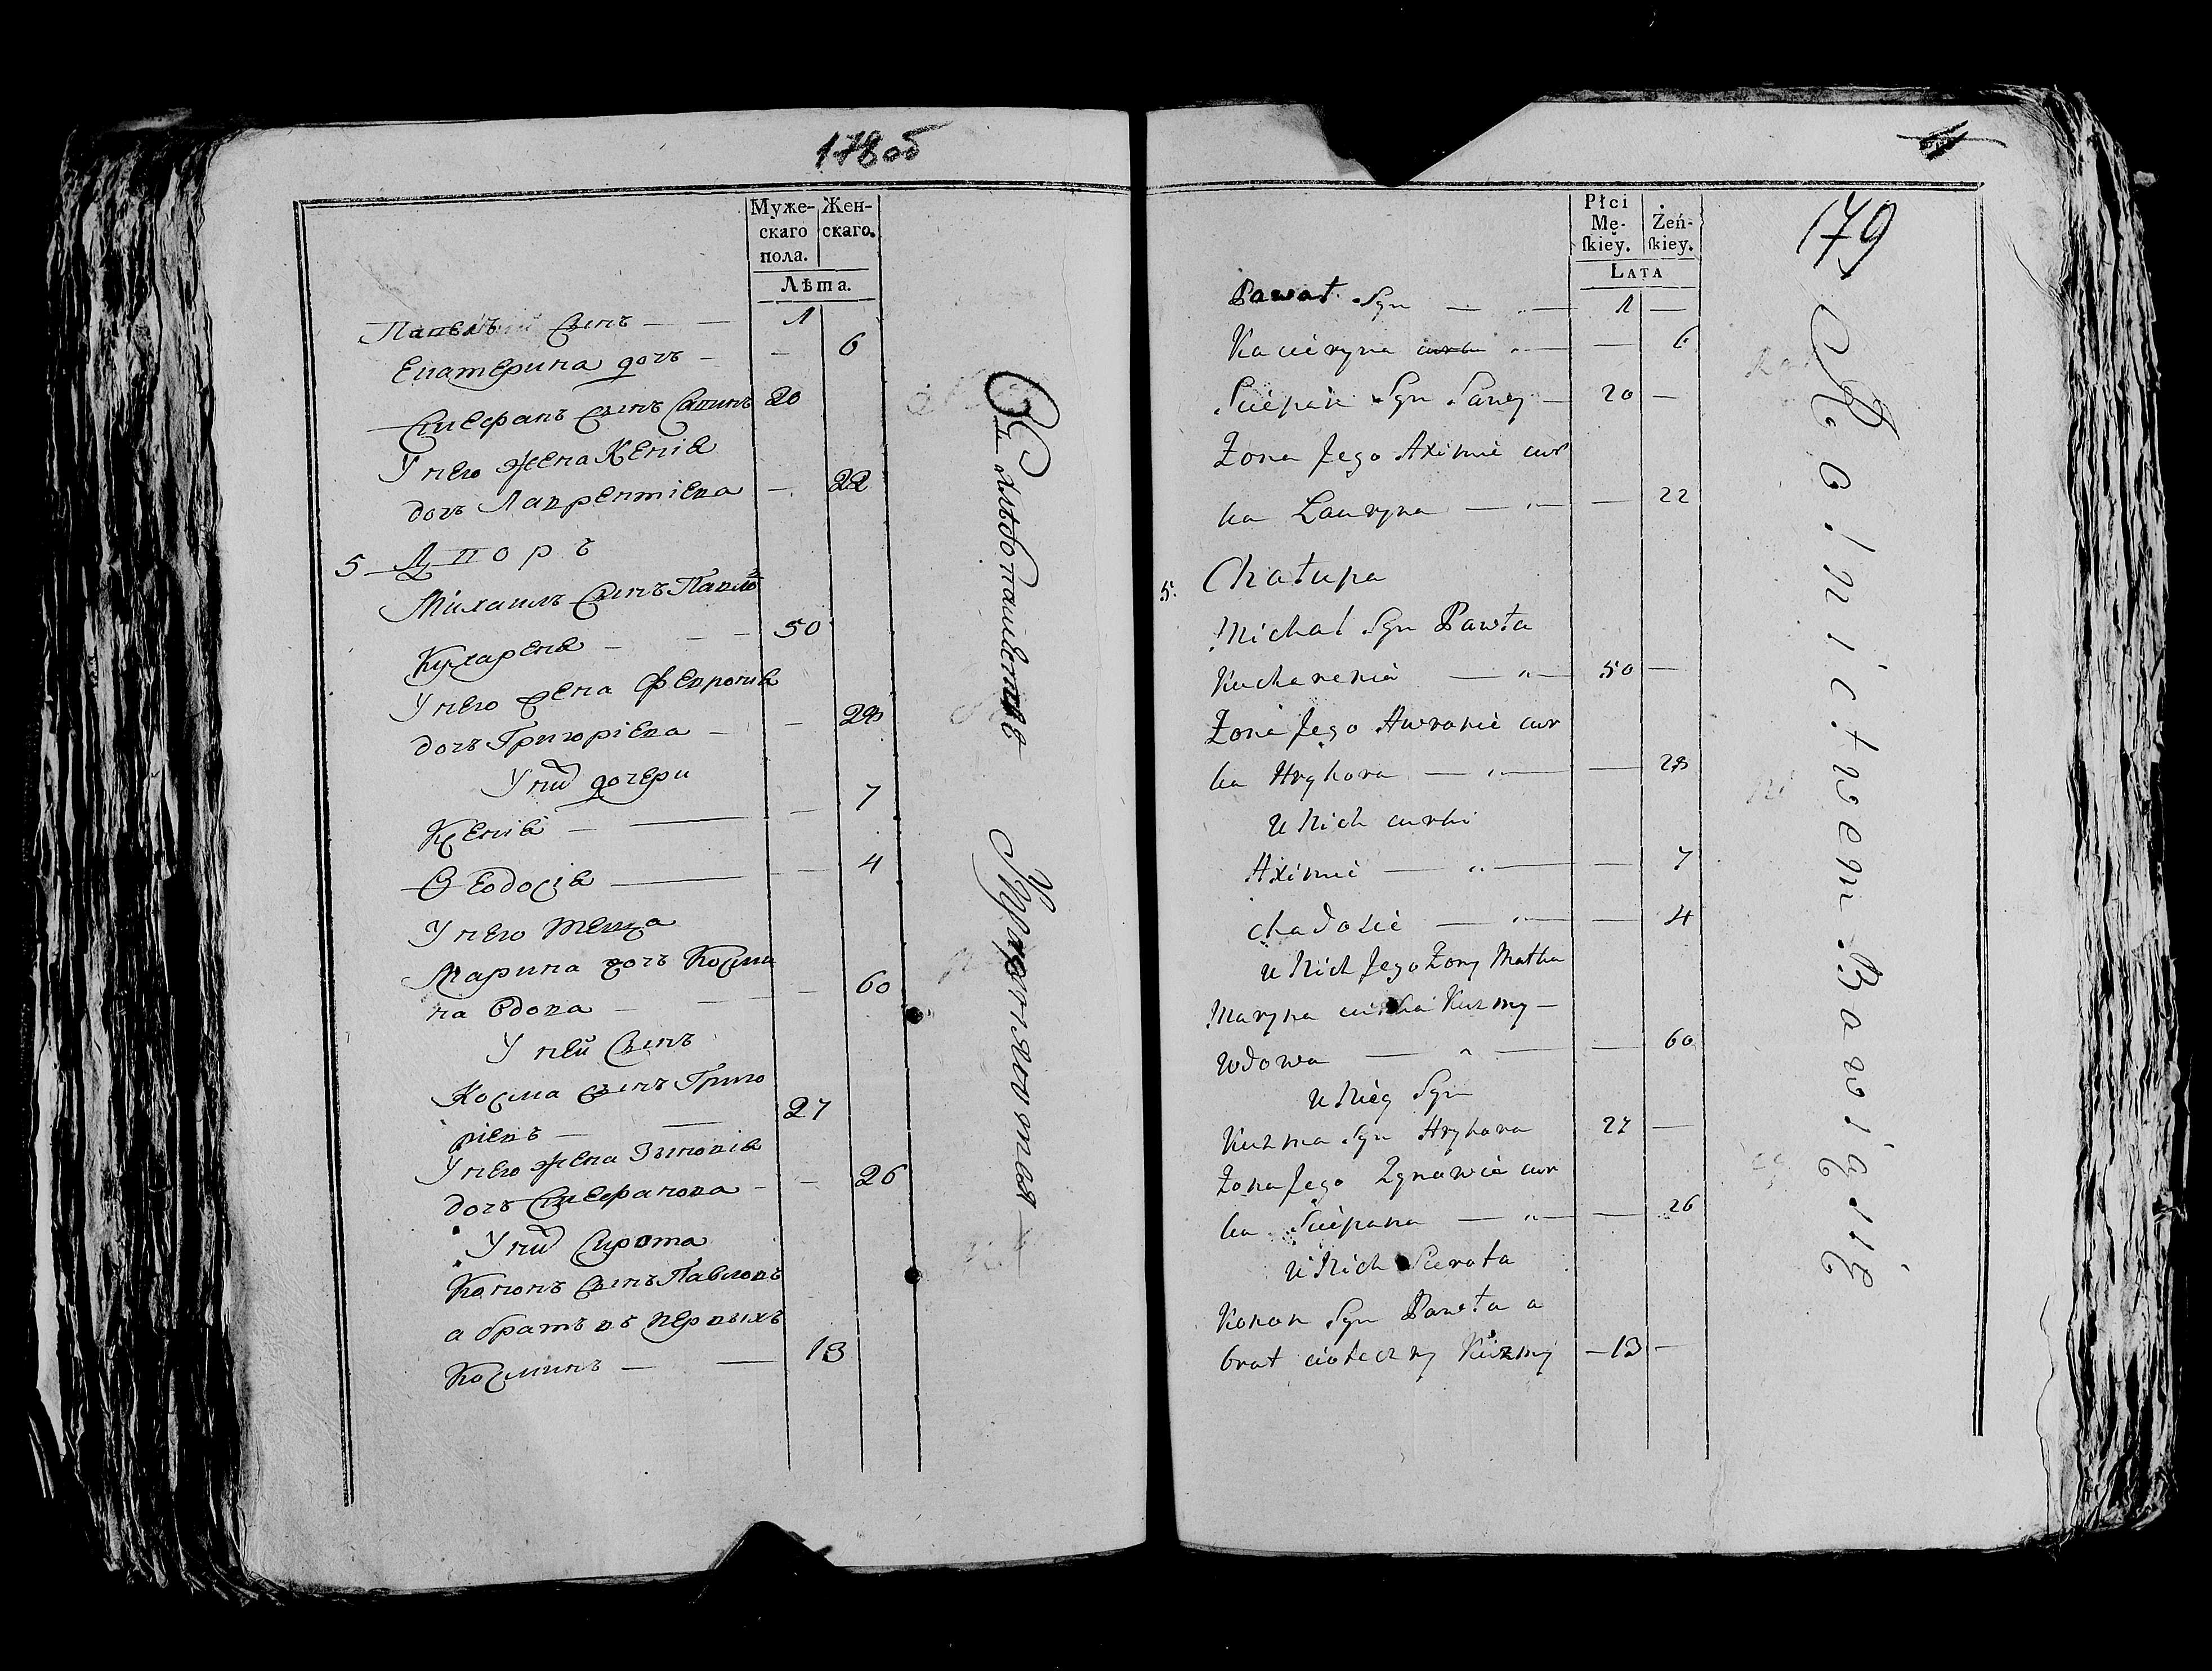 178об
Муже- Жен-
скаго скаго.
пола.
Лѣта.
Павелъ Сынъ — — 1
Екатерина дочь — — 6
Стефанъ Сынъ Савинъ 20
У него жена Ксенія
дочь Лаврентіева — 22
5 Дворъ
Михаилъ Сынъ Павло
Кухареня — — — 50
У него жена Февронія
дочь Григоріева — —
У них дочери
Ксенія — — — 7
Ѳеодосія — — — 4
У него теща
Марина дочь Косми
на вдова — — — 60
У ней Сынъ
Косма сынъ Григо
ріевъ — — 27
У него жена Зиновія
дочь Стефанова — — 26
У них Сирота
Кононъ Сынъ Павловъ
а братъ въ первыхъ
Косминъ — — 13
хлѣбопашествѣ
Упражняются
179
Płci
Mę- Żeń-
ſkiey. ſkiey.
LATA
Paweł Syn — „ — 1 —
Kacieryna curka „ — — 6
Sciepan Syn Sawy — 20 —
Żona Jego Axinnia cur
ka Lauryna — „ — — 22
5. Chałupa
Michał Syn Pawła
Kucharenia — „ — 50 —
Żona Jego Hawronia cur
ka Hryhora — „ — — 28
u Nich curki
Axinnia — „ — — 7
Chadosia — „ — — 4
u Nich Jego Żony Matka
Maryna curka Kuzmy —
wdowa — „ — — 60
u Niey Syn
Kuzma Syn Hryhora 27 —
Żona Jego Zynowia cur
ka Sciepana — „ — — 26
u Nich Sierota
Konon Syn Pawła a
brat cioteczny Kuzmy — 13 —
Rolnictwem Bawią się